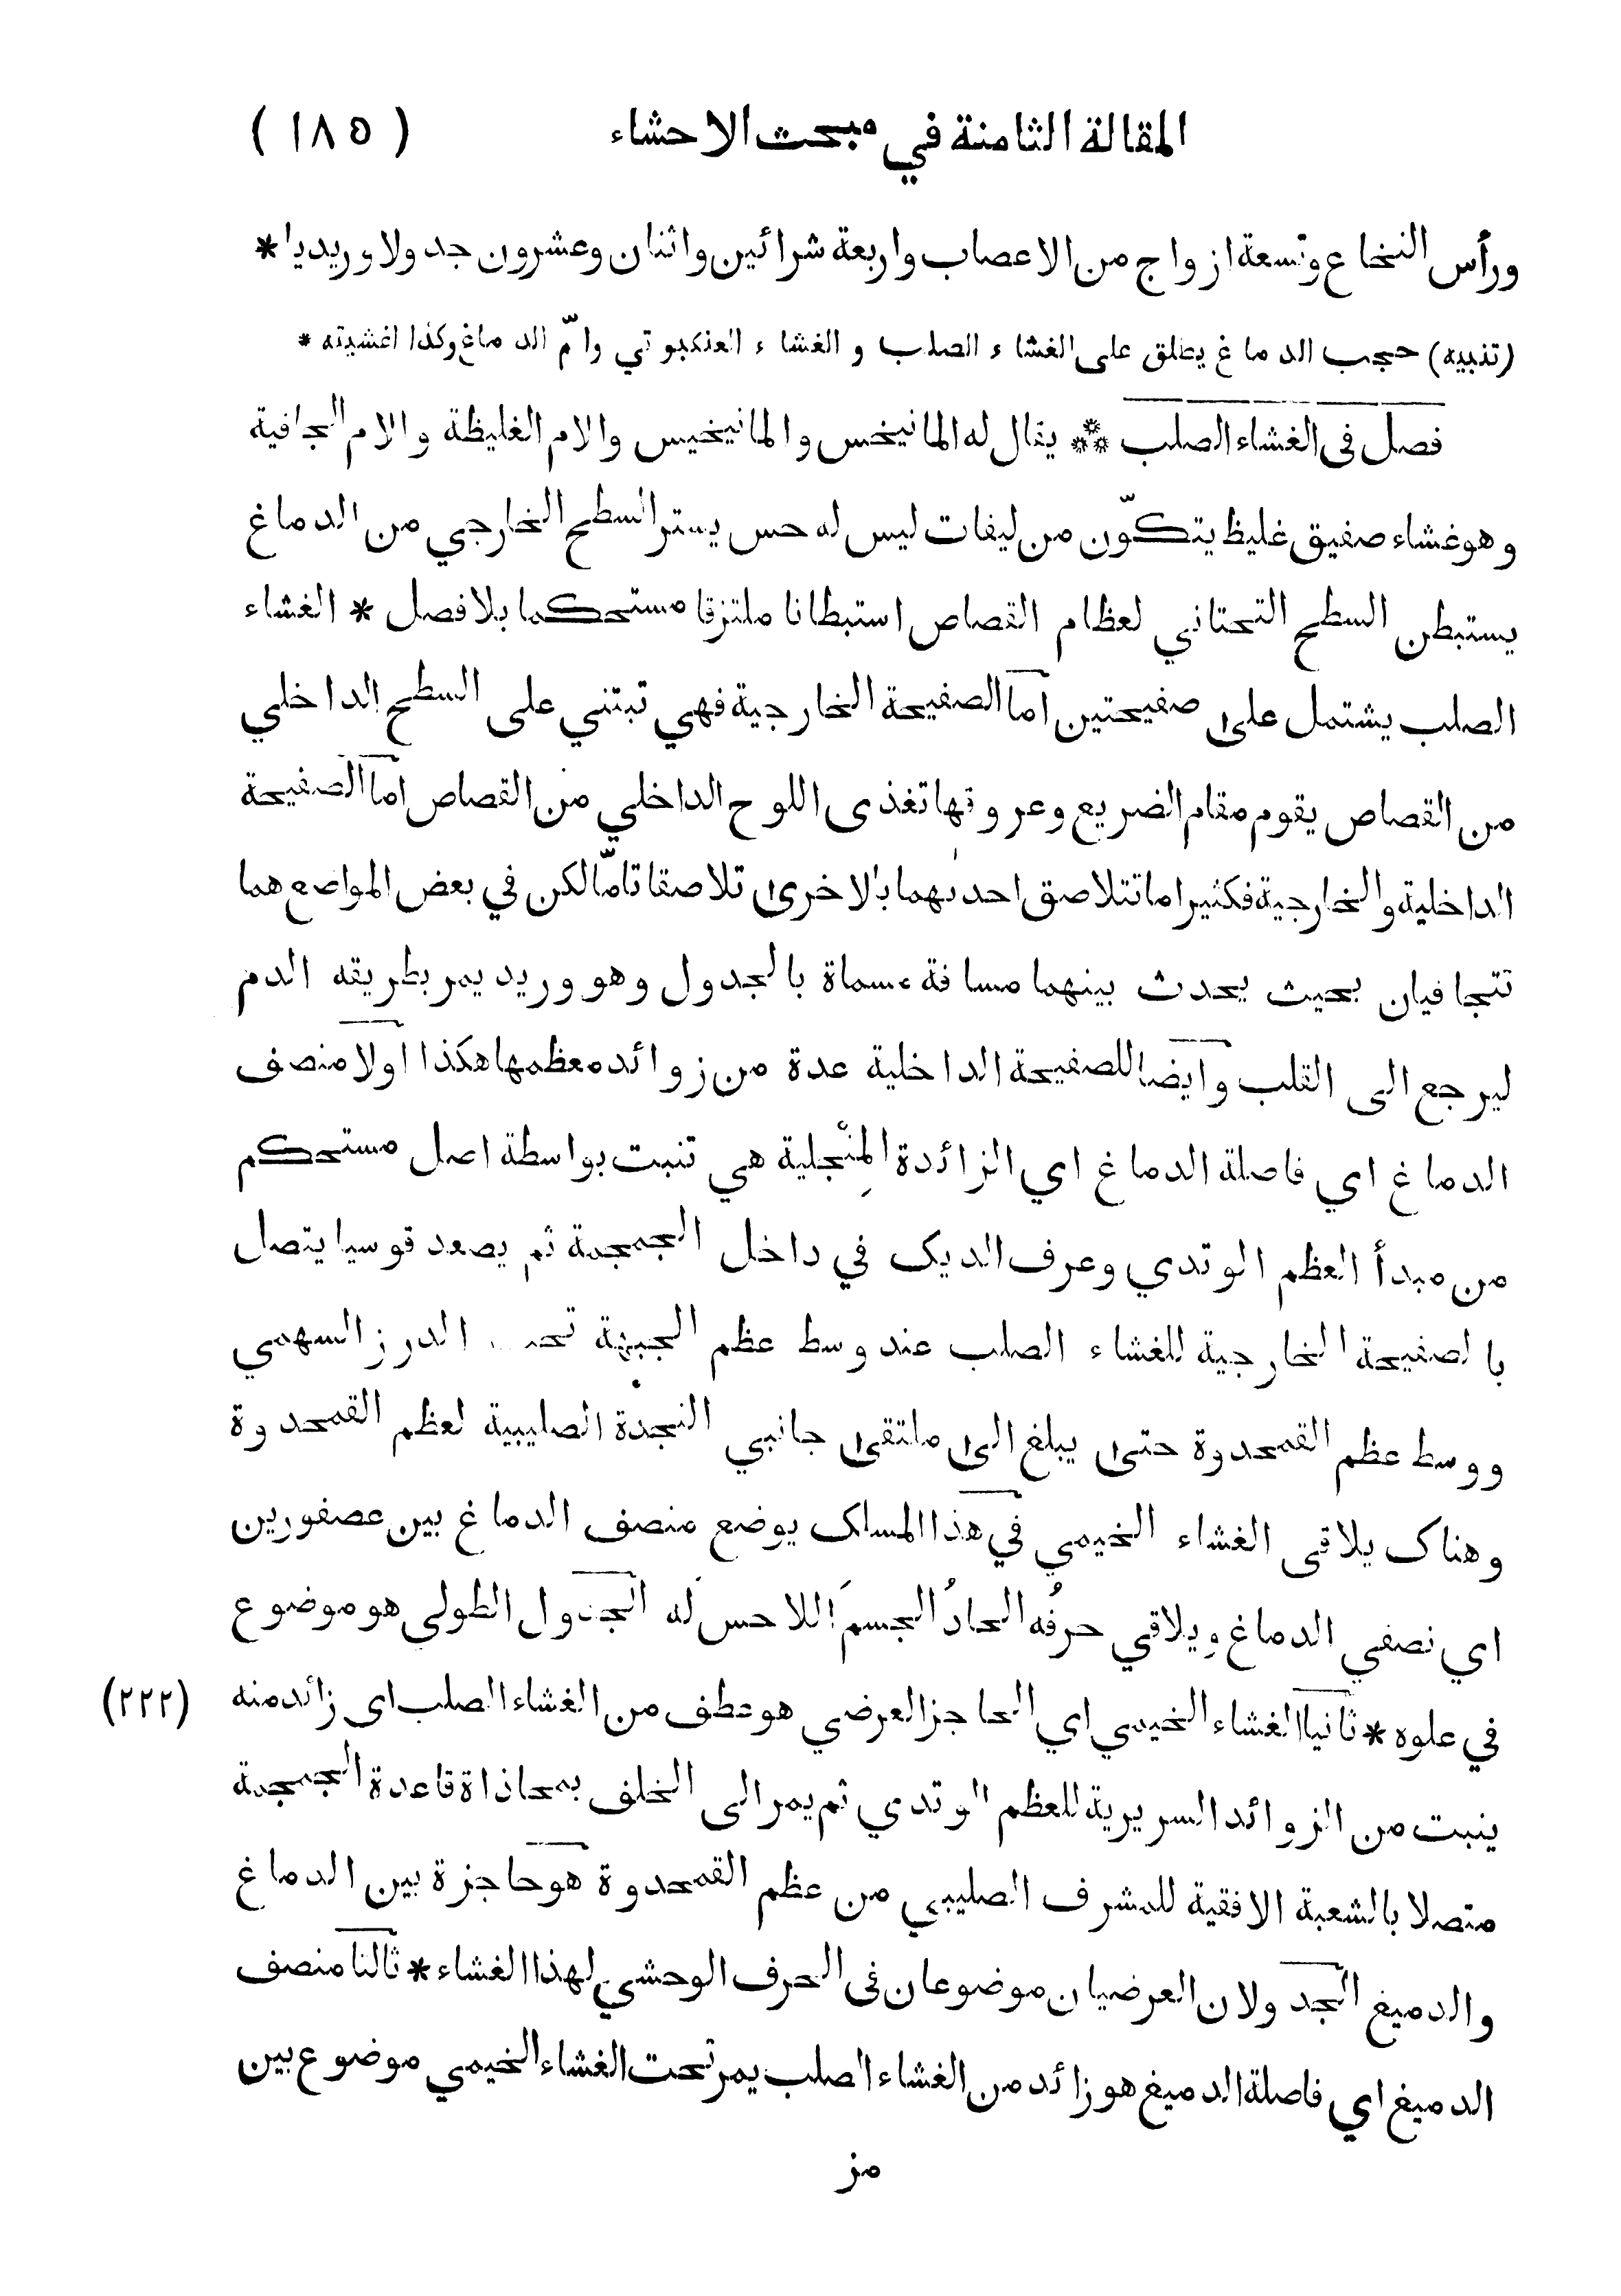 المقالة الثامنة في مبحث الاحشاء (١٨٥)
ورأس النخاع وتسعة ازواج من الاعصاب واربعة شرائين واثنان وعشرون جدولا وريديا *
(تنبيه) حجب الدماغ يطلق على الغشاء الصلب و الغشاء العنكبوتي وامّ الدماغ وكذا اغشيته *
فصل فى الغشاء الصلب ⁂ يقال له المانيخس والمانيخيس والام الغليظة والام الجافية
وهو غشاء صفيق غليظ يتكوّن من ليفات ليس له حس يستر السطح الخارجي من الدماغ
يستبطن السطح التحتاني لعظام القصاص استبطانا ملتزقا مستحكما بلافصل * الغشاء
الصلب يشتمل على صفيحتين اما الصفيحة الخارجية فهي تبتنى على السطح الداخلي
من القصاص يقوم مقام الضريع وعروقها تغذى اللوح الداخلي من القصاص اما الصفيحة
الداخلية والخارجية فكثيراما تتلاصق احدٮهما بالاخرى تلاصقا تامّا لكن في بعض المواضع هما
تتجافيان بحيث يحدث بينهما مسافة مسماة بالجدول وهو وريد يمر بطريقه الدم
ليرجع الى القلب وايضا للصفيحة الداخلية عدة من زوائد معظمها هكذا اولا منصف
الدماغ اي فاصلة الدماغ اي الزائدة المِنْجلية هي تنبت بواسطة اصل مستحكم
من مبدأ العظم الوتدي وعرف الديک في داخل الجمجمة ثم يصعد قوسيا يتصل
بالصفيحة الخارجية للغشاء الصلب عند وسط عظم الجبهة الدرز السهمي
ووسط عظم القمحدوة حتى يبلغ الى ملتقى جانبي النجدة الصليبية لعظم القمحدوة
وهناک يلاقى الغشاء الخيمي في هذا المسلک يوضع منصف الدماغ بين عصفورين
اي نصفي الدماغ ويلاقي حرفُه الحادُ الجسمَ اللاحس له الجدول الطولي هو موضوع
في علوه * ثانيا الغشاء الخيمي اي الحاجز العرضي هو عطف من الغشاء الصلب اى زائد منه (٢٢٢)
ينبت من الزوائد السريرية للعظم الوتدي ثم يمر الى الخلف بمحاذاة قاعدة الجمجمة
متصلا بالشعبة الافقية للمشرف الصليبي من عظم القمحدوة هو حاجزة بين الدماغ
والدميغ الجدولان العرضيان موضوعان فى الحرف الوحشي لهذا الغشاء * ثالثا منصف
الدميغ اي فاصلة الدميغ هو زائد من الغشاء الصلب يمر تحت الغشاء الخيمي موضوع بين